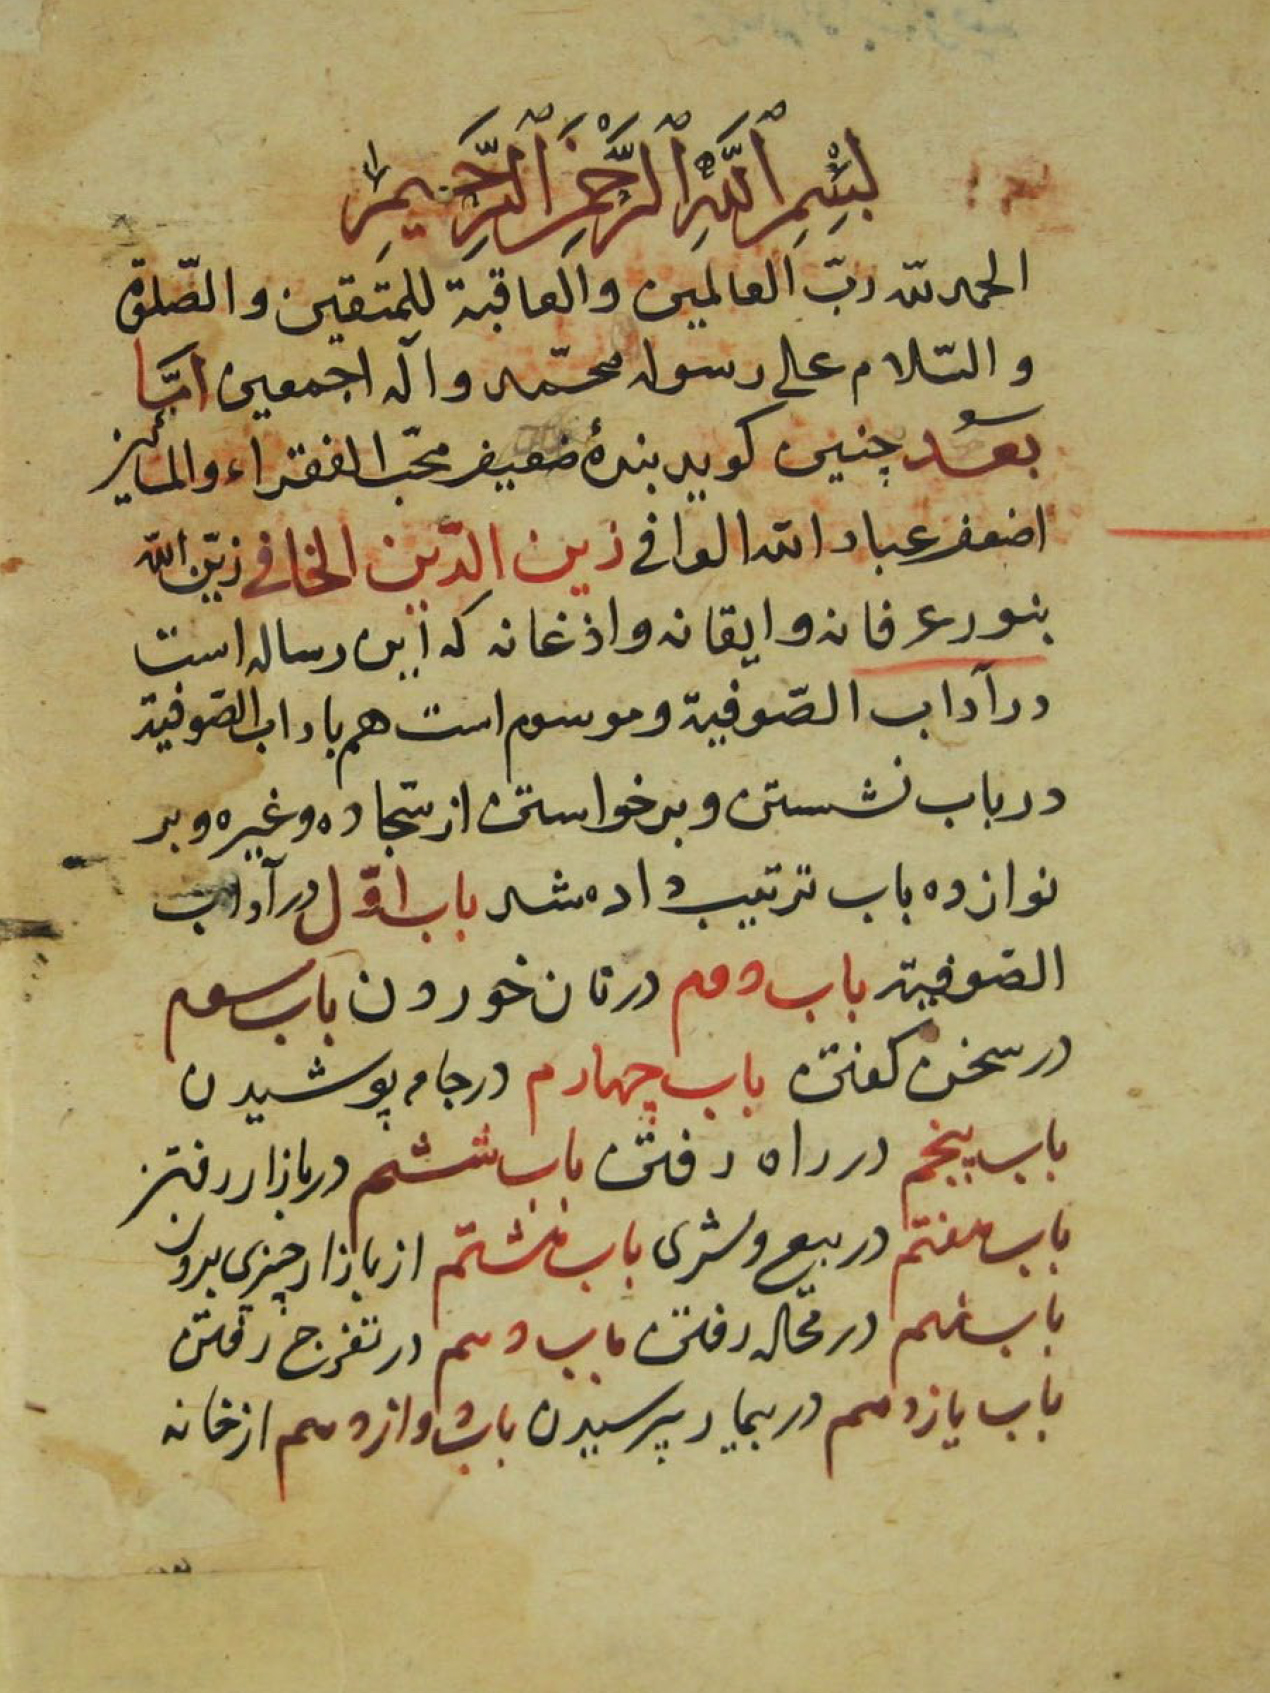 بسم الله الرحمن الرحيم
الحمد لله ربّ العالمين والعاقبة للمتقين والصّلوة
والسّلام على رسوله محمّد وآله اجمعين امّا
بعد چنين كويد بندهٔ ضعيف محبّ الفقراء والمساكين
اضعف عباد الله الوافى زين الدّين الخافى زيّن الله
بنور عرفانه وايقانه واذغانه كه اين رساله است
در آداب الصّوفيّة وموسوم است هم باداب الصّوفيّة
در باب نشستن و برخواستن از سجّاده وغيره و بر
نوازده باب ترتيب داده شد باب اوّل در آداب
الصّوفيّة باب دوم در نان خوردن باب سوم
در سخن كفتن باب چهارم در جامه پوشيدن
باب پنجم در راه رفتن باب ششم در بازار رفتن
باب هفتم در بيع وشرى باب هشتم از بازار چيزى بيرون
باب نهم در محاله رفتن باب دهم در تفرج رفتن
باب يازدهم در بيمار پرسيدن باب دوازدهم از خانه